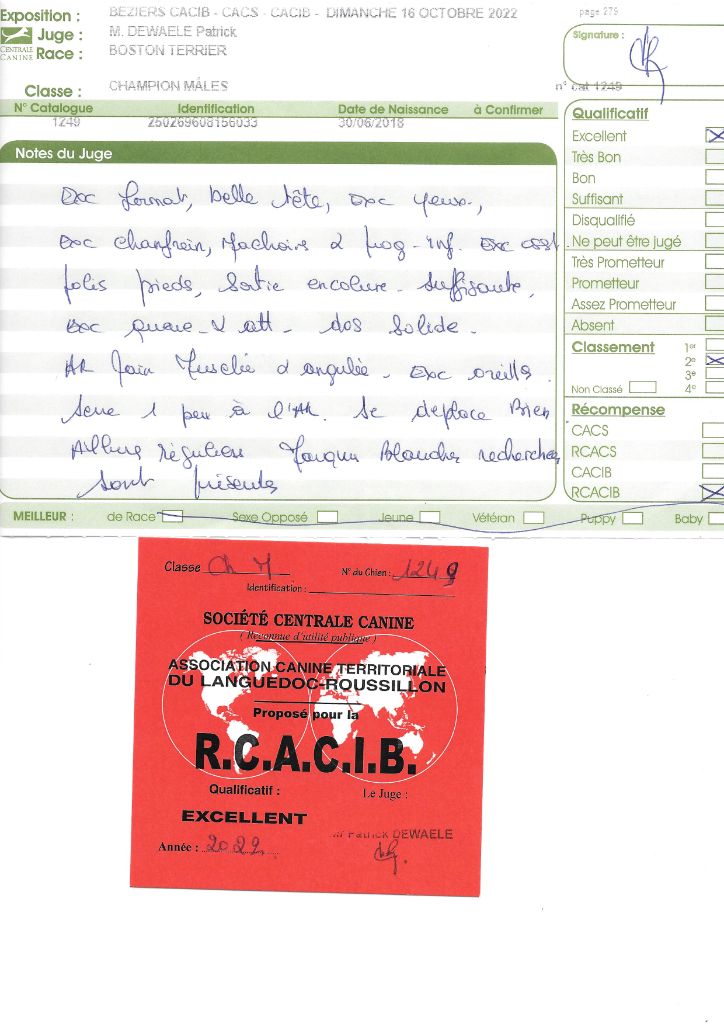 Exposition : BEZIERS CACIB - CACS - CACIB - DIMANCHE 16 OCTOBRE 2022
page 275
Juge : M. DEWAELE Patrick
CENTRALE CANINE
Race : BOSTON TERRIER
Signature :
Classe : CHAMPION MÂLES
n° cat 1249
N° Catalogue Identification Date de Naissance à Confirmer
1249 250269608156033 30/06/2018
Notes du Juge
Exc format, belle tête, Exc yeux,
Exc chanfrein, Machoire prog-inf. Exc osst
jolis pieds, Sortie encolure suffisante.
Exc queue att dos solide.
AR Main Musclée angulée - Exc oreilles.
Serre 1 peu à l'AR. Se deplace Bien
Allure régulière Marques Blanches recherchées
sont présentes
Qualificatif
Excellent
Très Bon
Bon
Suffisant
Disqualifié
Ne peut être jugé
Très Prometteur
Prometteur
Assez Prometteur
Absent
Classement 1er
2e
3e
Non Classé 4e
Récompense
CACS
RCACS
CACIB
RCACIB
MEILLEUR : de Race Sexe Opposé Jeune Vétéran Puppy Baby
Classe Ch M N° du Chien : 1249
Identification :
SOCIÉTÉ CENTRALE CANINE
( Reconnue d'utilité publique )
ASSOCIATION CANINE TERRITORIALE
DU LANGUEDOC-ROUSSILLON
Proposé pour la
R.C.A.C.I.B.
Qualificatif : Le Juge :
EXCELLENT
M Patrick DEWAELE
Année : 2022